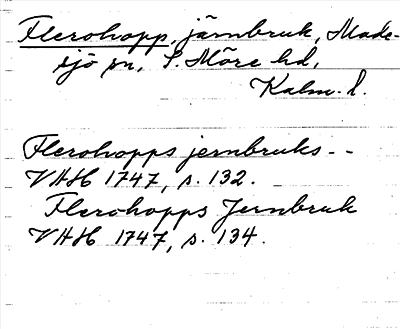 Flerohopp, järnbruk, Made-
sjö sn, S. Möre hd,
Kalm. l.
Flerohopps jernbruks--
VHH 1747, s. 132.
Flerohopps Jernbruk
VHH 1747, s. 134.